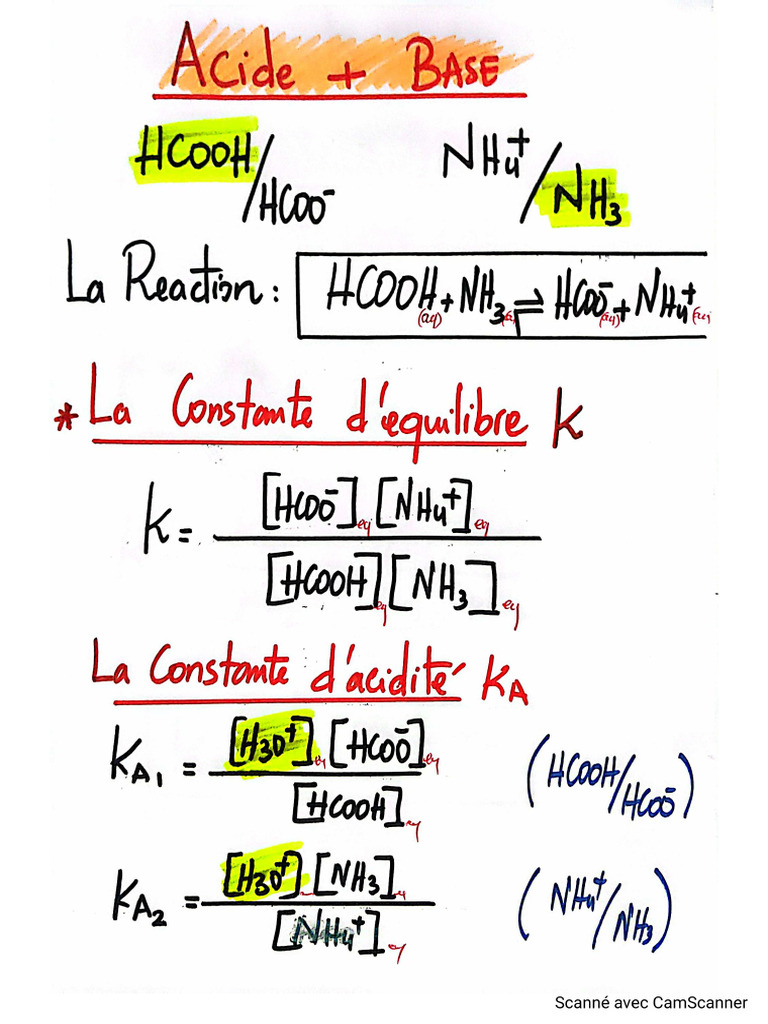 Acide + BASE
HCOOH/HCOO⁻ NH₄⁺/NH₃
La Reaction : HCOOH(aq) + NH₃(aq) ⇌ HCOO⁻(aq) + NH₄⁺(aq)
* La Constante d'équilibre K
K = [HCOO⁻]eq [NH₄⁺]eq / [HCOOH]eq [NH₃]eq
La Constante d'acidité KA
KA₁ = [H3O⁺]eq [HCOO⁻]eq / [HCOOH]eq (HCOOH/HCOO⁻)
KA₂ = [H3O⁺] [NH3]eq / [NH₄⁺]eq (NH₄⁺/NH₃)
Scanné avec CamScanner